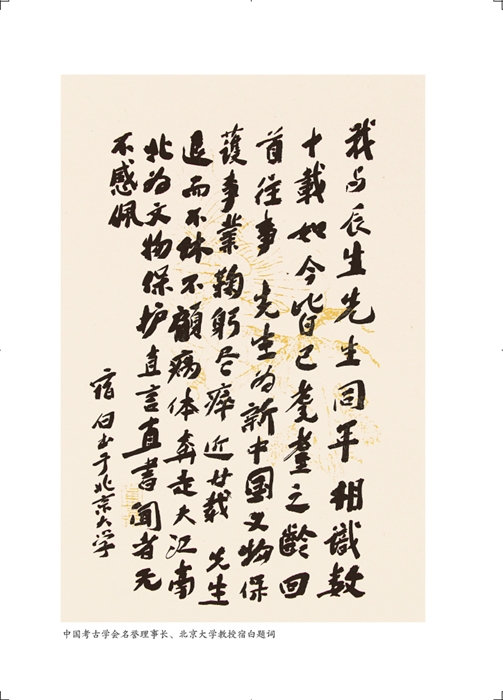 我与辰生先生同年相识数
十载如今皆已耄耋之龄回
首往事先生为新中国文物保
護事業鞠躬尽瘁近廿载先生
退而不休不顧病体奔走大江南
北为文物保护直言直書闻者无
不感佩
宿白书于北京大学
中国考古学会名誉理事长、北京大学教授宿白题词